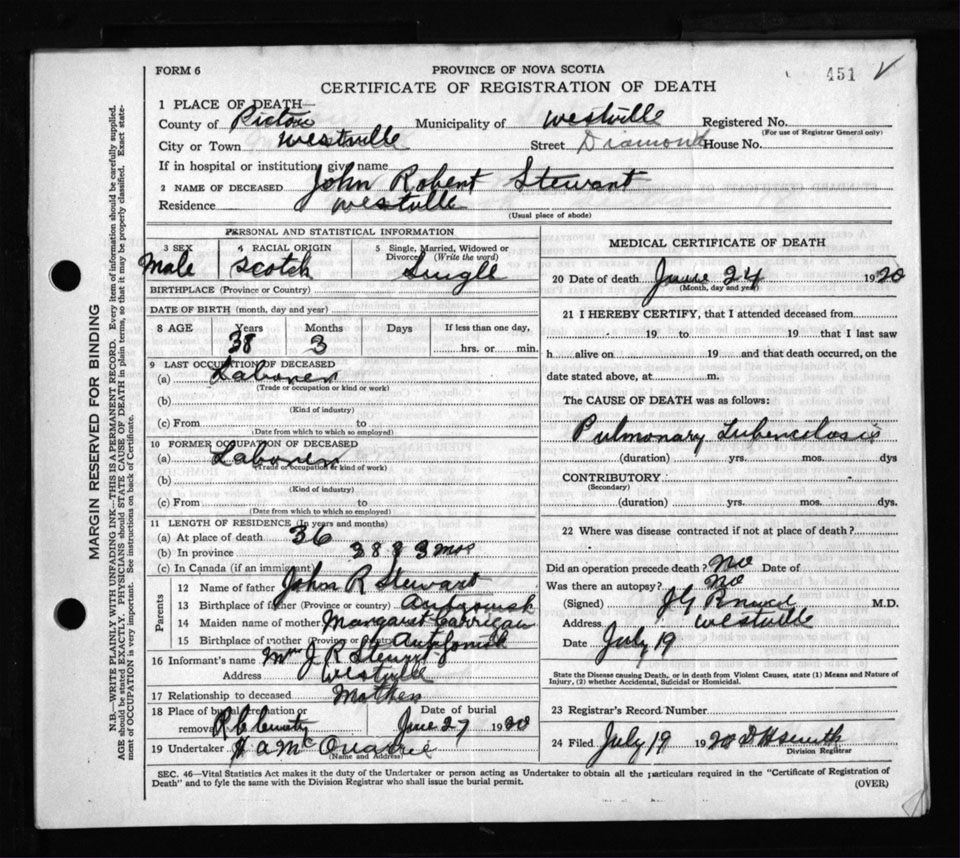 FORM 6
PROVINCE OF NOVA SCOTIA
451 √
CERTIFICATE OF REGISTRATION OF DEATH
1 PLACE OF DEATH—
County of Pictou Municipality of Westville Registered No.
(For use of Registrar General only)
City or Town Westville Street Diamond House No.
If in hospital or institution, give name
2 NAME OF DECEASED John Robert Stewart
Residence Westville
(Usual place of abode)
PERSONAL AND STATISTICAL INFORMATION
3 SEX 4 RACIAL ORIGIN 5 Single, Married, Widowed or Divorced (Write the word)
Male Scotch Single
BIRTHPLACE (Province or Country)
DATE OF BIRTH (month, day and year)
8 AGE Years Months Days If less than one day,
38 3 hrs. or min.
9 LAST OCCUPATION OF DECEASED
(a) Laborer
(Trade or occupation or kind or work)
(b)
(Kind of industry)
(c) From to
(Date from which to which so employed)
10 FORMER OCCUPATION OF DECEASED
(a) Laborer
(Trade or occupation or kind of work)
(b)
(Kind of industry)
(c) From to
(Date from which to which so employed)
11 LENGTH OF RESIDENCE (In years and months)
(a) At place of death 36
(b) In province 38 & 3 mos
(c) In Canada (if an immigrant)
Parents
12 Name of father John R Stewart
13 Birthplace of father (Province or country)
14 Maiden name of mother Margaret Carrigan
15 Birthplace of mother (Province or country)
16 Informant's name Mrs J. R Stewart
Address Westville
17 Relationship to deceased Mother
18 Place of burial, cremation or removal R C Cemetry Date of burial June 27 1920
19 Undertaker H A McQuarrie
(Name and Address)
MEDICAL CERTIFICATE OF DEATH
20 Date of death June 24 1920
(Month, day and year)
21 I HEREBY CERTIFY, that I attended deceased from
19 to 19 that I last saw
h alive on 19 and that death occurred, on the
date stated above, at m.
The CAUSE OF DEATH was as follows:
Pulmonary Tuberculosis
(duration) yrs. mos. dys
CONTRIBUTORY
(Secondary)
(duration) yrs. mos. dys.
22 Where was disease contracted if not at place of death?
Did an operation precede death? No Date of
Was there an autopsy? No
(Signed) M.D.
Address Westville
Date July 19
State the Disease causing Death, or in death from Violent Causes, state (1) Means and Nature of Injury, (2) whether Accidental, Suicidal or Homicidal.
23 Registrar's Record Number
24 Filed July 19 1920 D H Smith
Division Registrar
SEC. 46—Vital Statistics Act makes it the duty of the Undertaker or person acting as Undertaker to obtain all the particulars required in the "Certificate of Registration of
Death" and to fyle the same with the Division Registrar who shall issue the burial permit.
(OVER)
MARGIN RESERVED FOR BINDING
N.B.—WRITE PLAINLY WITH UNFADING INK—THIS IS A PERMANENT RECORD. Every item of information should be carefully supplied.
AGE should be stated EXACTLY. PHYSICIANS should STATE CAUSE OF DEATH in plain terms, so that it may be properly classified. Exact statement
of OCCUPATION is very important. See instructions on back of Certificate.